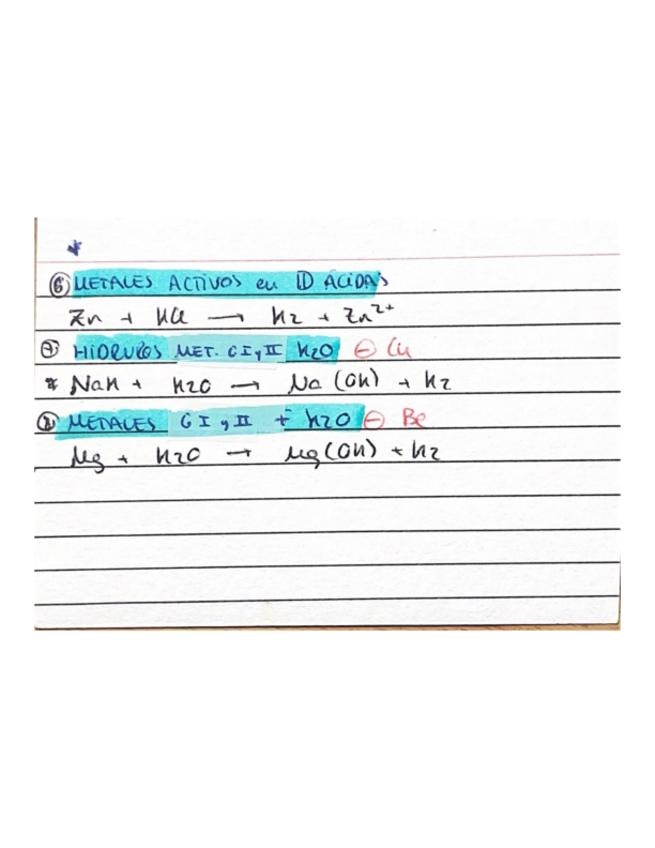 ⑥ METALES ACTIVOS en D ÁCIDAS
Zn + HCl → H2 + Zn2+
⑦ HIDRUROS MET. G I y II H2O ⊖ Cu
* NaH + H2O → Na (OH) + H2
⑧ METALES G I y II + H2O ⊖ Be
Mg + H2O → Mg(OH) + H2